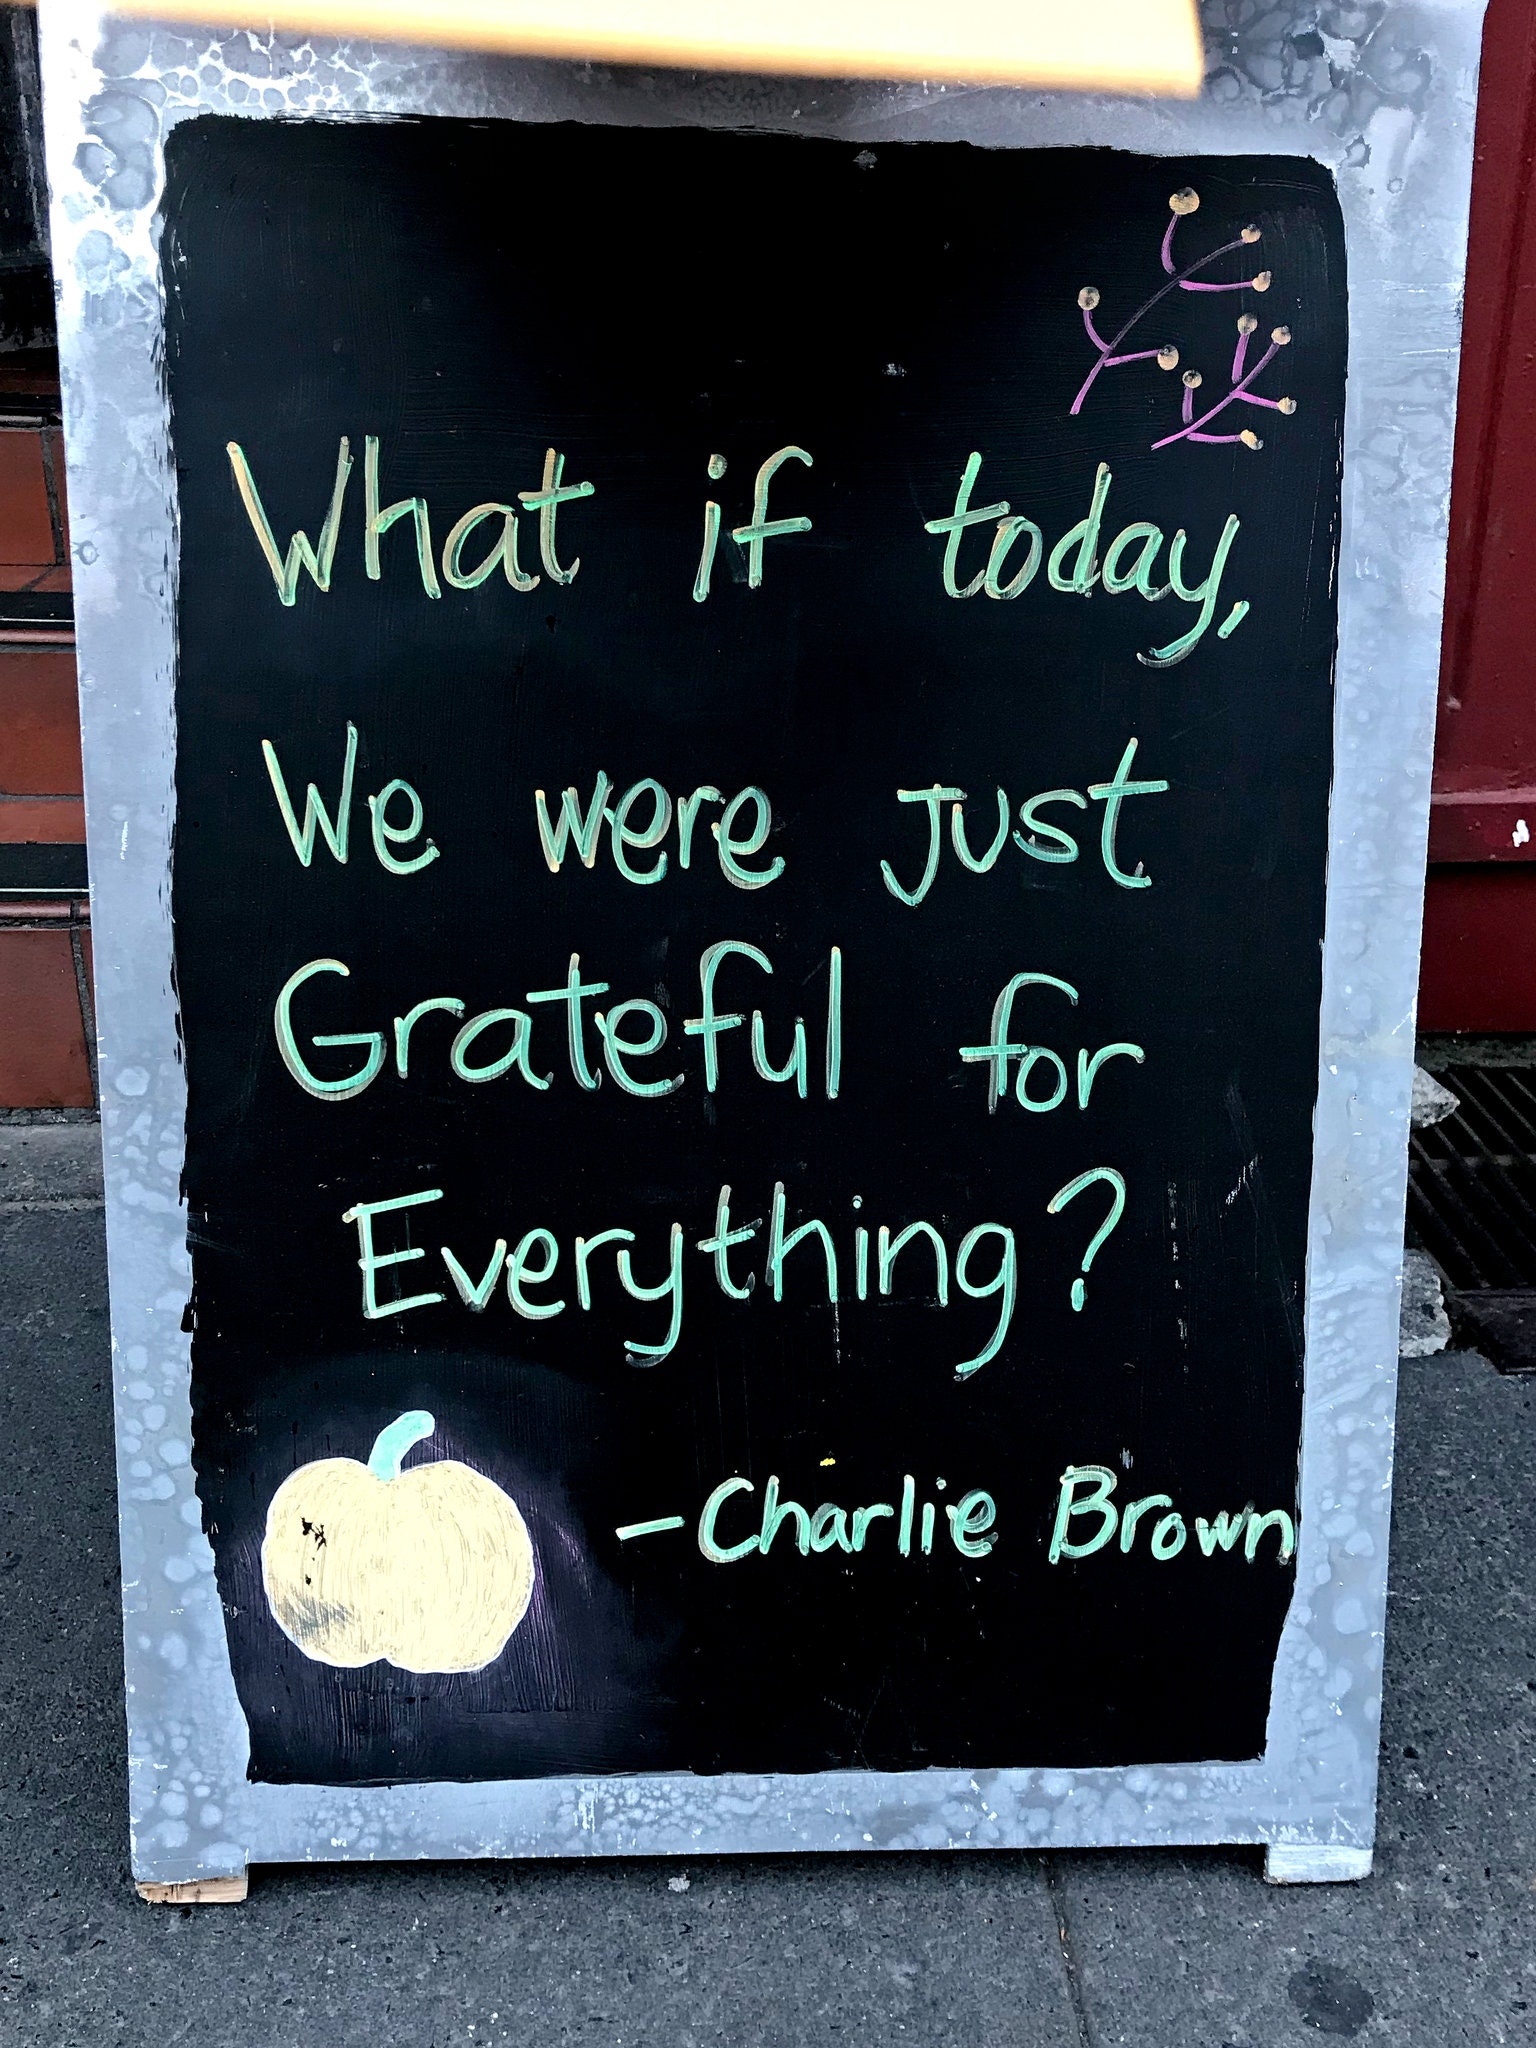 What if today,
We were just
Grateful for
Everything?
-Charlie Brown